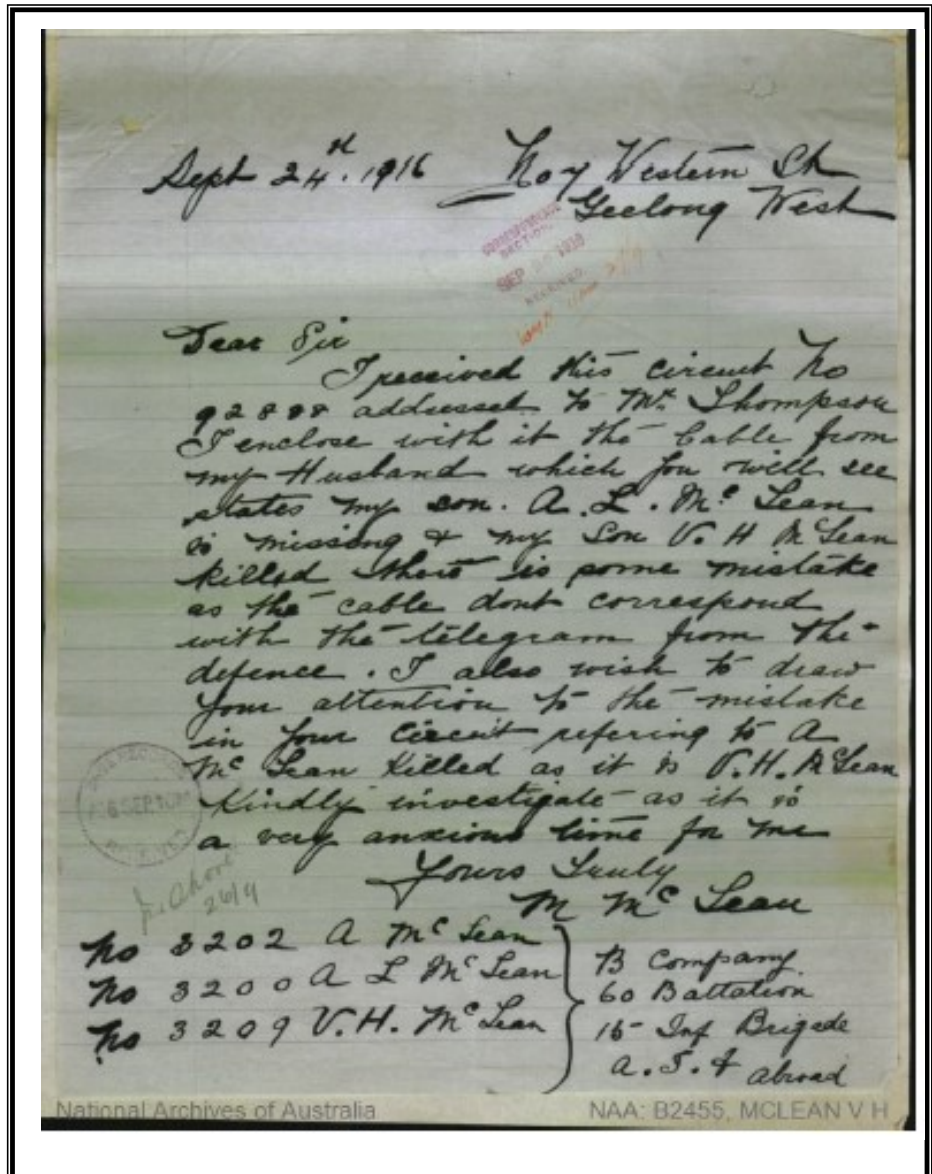 Sept 24th. 1916 No 7 Western St
Geelong West
SECTION
SEP 1916
RECEIVED
Dear Sir
I received this circuit No
92888 addressed to Mr. Thompson
I enclose with it the Cable from
my Husband which you will see
states my son. A. L. Mc Lean
is missing & my Son V. H Mc Lean
killed there is some mistake
as the cable dont correspond
with the telegram from the
defence. I also wish to draw
your attention to the mistake
in your Circuit refering to A
Mc Lean Killed as it is V. H. Mc Lean
Kindly investigate as it is
a very anxious time for me
Yours Truly
M Mc Lean
26/9
No 3202 A Mc Lean
No 3200 A L Mc Lean
No 3209 V. H. Mc Lean
B Company.
60 Battalion
15 Inf Brigade
A. I. F abroad
National Archives of Australia NAA: B2455, MCLEAN V H